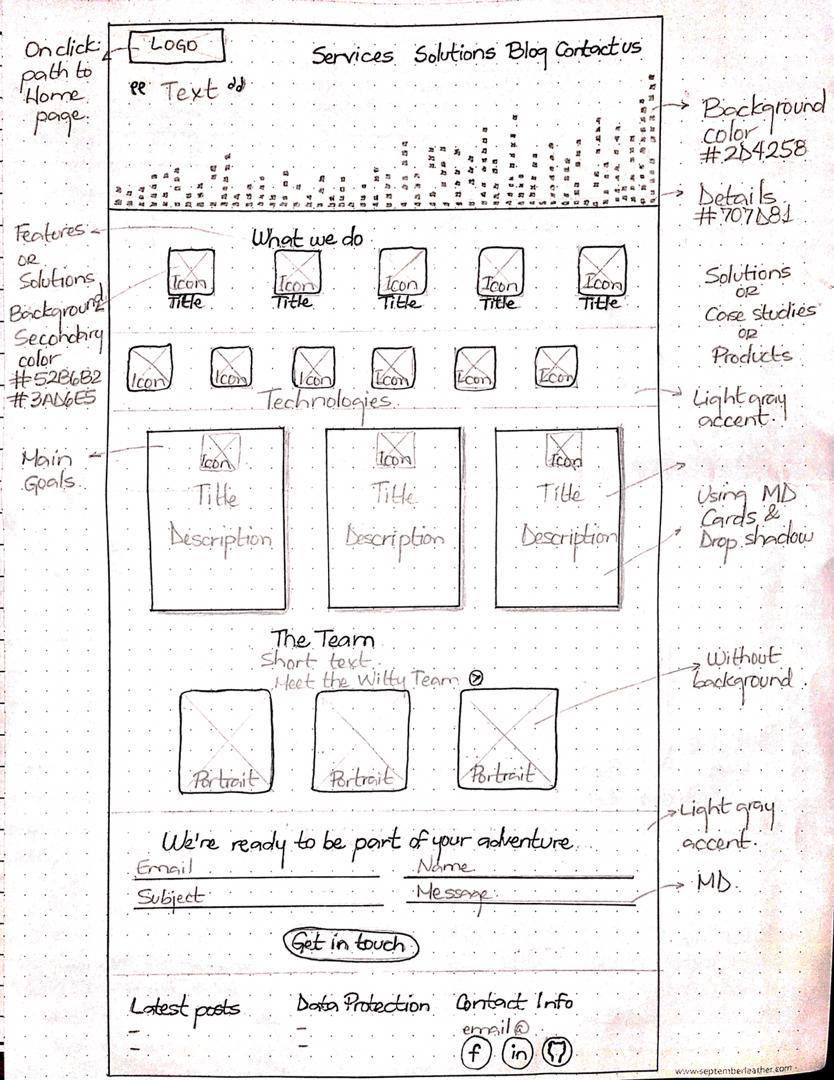 On click
path to
Home
page.
LOGO
Services Solutions Blog Contact us
Text
Background
color
#2D4258
Details
#707D81
Features
OR
Solutions
Background
Secondary
color
#52B6B2
#3AD6E5
What we do
Icon Icon Icon Icon Icon
Title Title Title Title Title
Solutions
OR
Case studies
OR
Products
Icon Icon Icon Icon Icon Icon
Technologies
Light gray
accent.
Main
Goals
Icon Icon Icon
Title Title Title
Description Description Description
Using MD
Cards &
Drop shadow
The Team
Short text
Meet the Witty Team >
Without
background
Portrait Portrait Portrait
Light gray
accent.
We're ready to be part of your adventure
Email Name
Subject Message
MD.
Get in touch
Latest posts Data Protection Contact Info
email@
f in
www.septemberleather.com